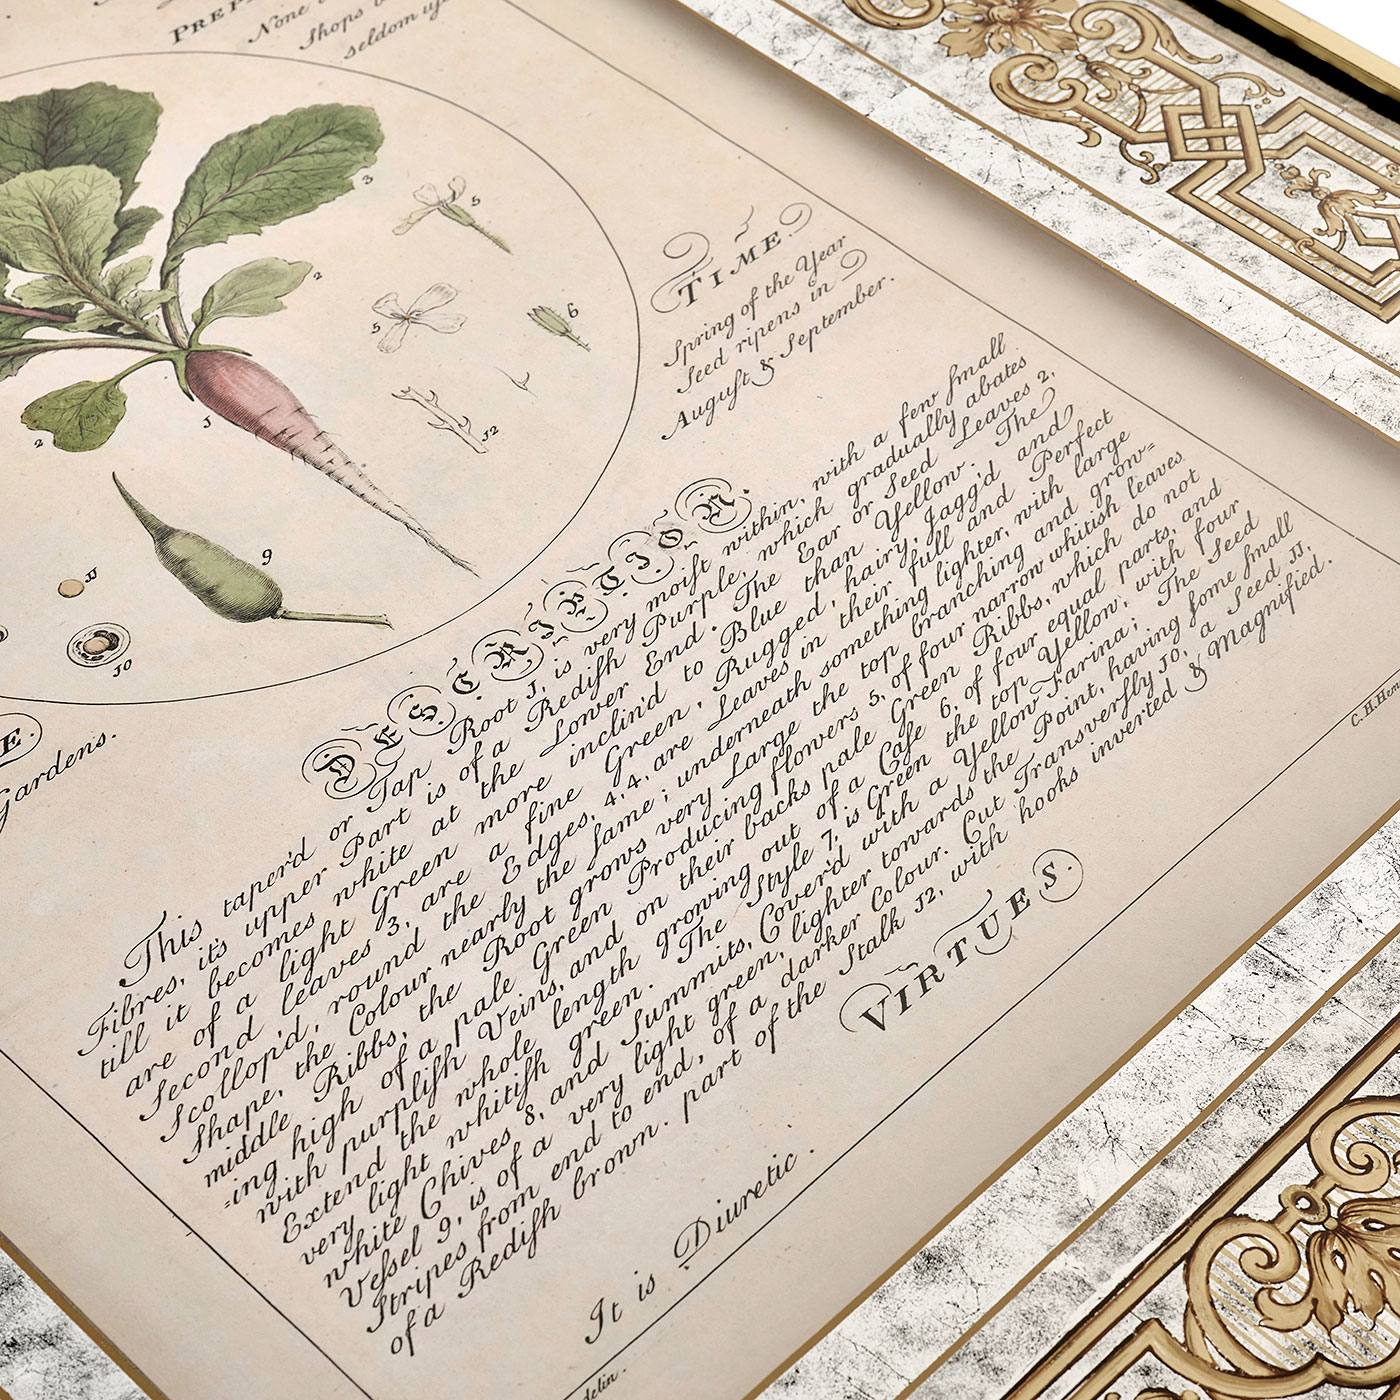 PREP
None
Shops
seldom us
3
2
5
5
6
12
1
2
9
11
10
TIME.
Spring of the Year
Seed ripens in
August & September.
E.
Gardens.
DESCRIPTION.
This taper'd or Tap Root 1, is very moist within, with a few small
Fibres, it's upper Part is of a Redish Purple, which gradually abates
till it becomes white at the Lower End. The Ear or Seed Leaves 2,
are of a light Green more inclin'd to Blue than Yellow. The
Second leaves 3, are a fine Green, Rugged, hairy, Jagg'd and
Scollop'd, round the Edges, 4, 4, are Leaves in their full and Perfect
Shape, the Colour nearly the same; underneath something lighter, with large
middle Ribbs, the Root grows very Large the top branching and grow=
=ing high of a pale Green Producing flowers 5, of four narrow whitish leaves
with purplish Veins, and on their backs pale Green Ribbs, which do not
Extend the whole length growing out of a Case 6, of four equal parts, and
very light whitish green. The Style 7, is Green the top Yellow, with four
white Chives 8, and Summits, Cover'd with a Yellow Farina; The Seed
Vessel 9, is of a very light green, lighter towards the Point, having some small
Stripes from end to end, of a darker Colour. Cut Transversly, 10, a Seed 11,
of a Redish brown. part of the Stalk 12, with hooks inverted & Magnified.
VIRTUES.
It is Diuretic.
delin.
C.H.Hem